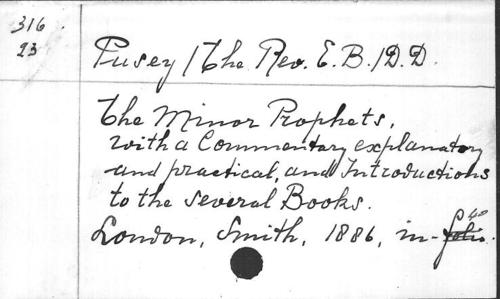 316
23
Pusey / The Rev. E. B. / D. D.
The Minor Prophets,
with a Commentary explanatory
and practical, and Introductions
to the several Books.
London, Smith, 1886, in-folio. 4o